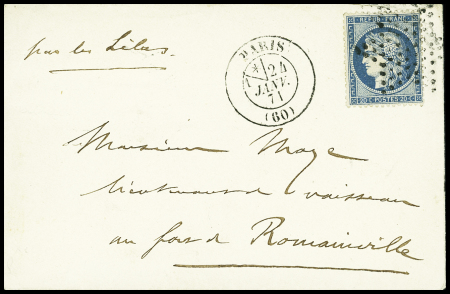 par les Lilas
PARIS
24
JANV.
71
(60)
REPUB. FRANC.
20 C. POSTES 20 C.
Monsieur Moye
lieutenant de vaisseau
au fort de Romainville